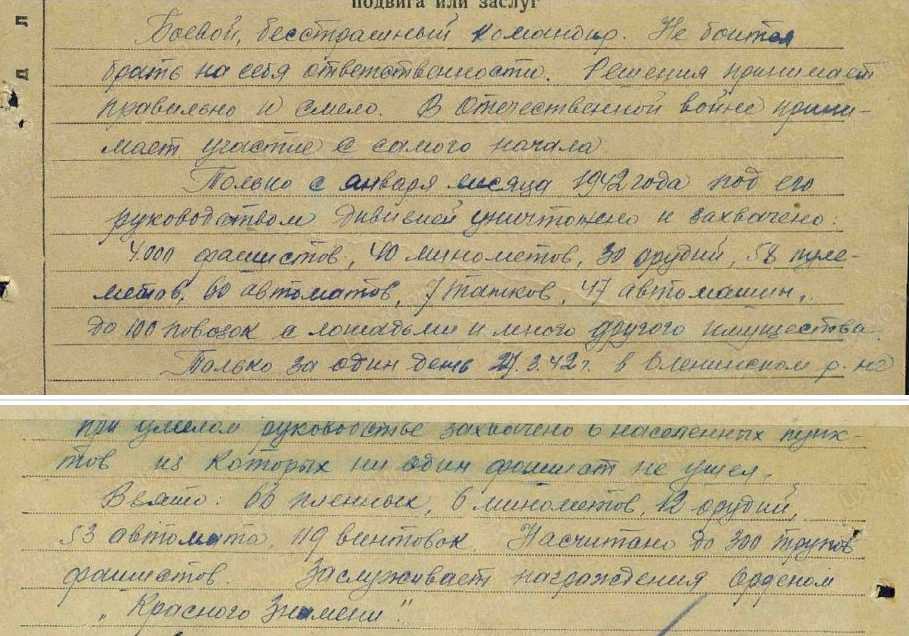 подвига или заслуг
Боевой, бесстрашный командир. Не боится
брать на себя ответственности. Решения принимает
правильно и смело. В Отечественной войне прини-
мает участие с самого начала
Только с января месяца 1942 года под его
руководством дивизией уничтожено и захвачено:
4000 фашистов, 40 минометов, 30 орудий, 58 пуле-
метов, 60 автоматов, 7 танков, 47 автомашин,
до 100 повозок с лошадьми и много другого имущества.
Только за один день 27.3.42 г. в Оленинском р-не
при умелом руководстве захвачено 6 населенных пунк-
тов из которых ни один фашист не ушел.
Взято: пленных, 6 минометов, 12 орудий,
53 автомата, 119 винтовок. Насчитано до 300 трупов
фашистов. Заслуживает награждения Орденом
„Красного Знамени".